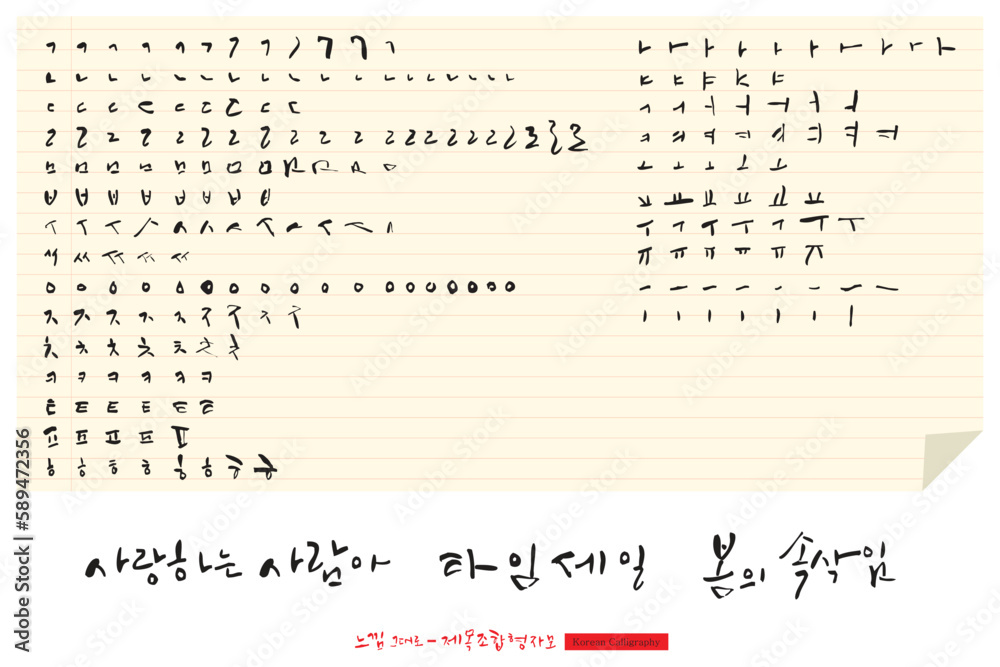 ㄱ ㄱ ㄱ ㄱ ㄱ ㄱ ㄱ ㄱ ㄱ ㄱ ㄱ ㄱ
ㄴ ㄴ ㄴ ㄴ ㄴ ㄴ ㄴ ㄴ ㄴ ㄴ ㄴ ㄴ ㄴ ㄴ ㄴ ㄴ ㄴ ㄴ ㄴ ㄴ ㄴ
ㄷ ㄷ ㄷ ㄷ ㄷ ㄷ ㄷ ㄷ ㄷ
ㄹ ㄹ ㄹ ㄹ ㄹ ㄹ ㄹ ㄹ ㄹ ㄹ ㄹ ㄹ ㄹ ㄹ ㄹ ㄹ ㄹ ㄹ ㄹ ㄹ ㄹ ㄹ
ㅁ ㅁ ㅁ ㅁ ㅁ ㅁ ㅁ ㅁ ㅁ ㅁ ㅁ ㅁ
ㅂ ㅂ ㅂ ㅂ ㅂ ㅂ ㅂ ㅂ
ㅅ ㅅ ㅅ ㅅ ㅅ ㅅ ㅅ ㅅ ㅅ ㅅ ㅅ ㅅ
ㅆ ㅆ ㅆ ㅆ ㅆ
ㅇ ㅇ ㅇ ㅇ ㅇ ㅇ ㅇ ㅇ ㅇ ㅇ ㅇ ㅇ ㅇ ㅇ ㅇ ㅇ ㅇ ㅇ ㅇ
ㅈ ㅈ ㅈ ㅈ ㅈ ㅈ ㅈ ㅈ ㅈ
ㅊ ㅊ ㅊ ㅊ ㅊ ㅊ ㅊ
ㅋ ㅋ ㅋ ㅋ ㅋ ㅋ
ㅌ ㅌ ㅌ ㅌ ㅌ ㅌ
ㅍ ㅍ ㅍ ㅍ ㅍ
ㅎ ㅎ ㅎ ㅎ ㅎ ㅎ ㅎ ㅎ
ㅏ ㅏ ㅏ ㅏ ㅏ ㅏ ㅏ ㅏ ㅏ ㅏ
ㅑ ㅑ ㅑ ㅑ ㅑ
ㅓ ㅓ ㅓ ㅓ ㅓ ㅓ ㅓ
ㅕ ㅕ ㅕ ㅕ ㅕ ㅕ ㅕ ㅕ
ㅗ ㅗ ㅗ ㅗ ㅗ
ㅛ ㅛ ㅛ ㅛ ㅛ ㅛ
ㅜ ㅜ ㅜ ㅜ ㅜ ㅜ ㅜ
ㅠ ㅠ ㅠ ㅠ ㅠ ㅠ
ㅡ ㅡ ㅡ ㅡ ㅡ ㅡ ㅡ ㅡ
ㅣ ㅣ ㅣ ㅣ ㅣ ㅣ ㅣ
사랑하는 사람아 타임세일 봄의 속삭임
느낌 그대로 - 제목조합형자모 Korean Calligraphy
Adobe Stock | #589472356